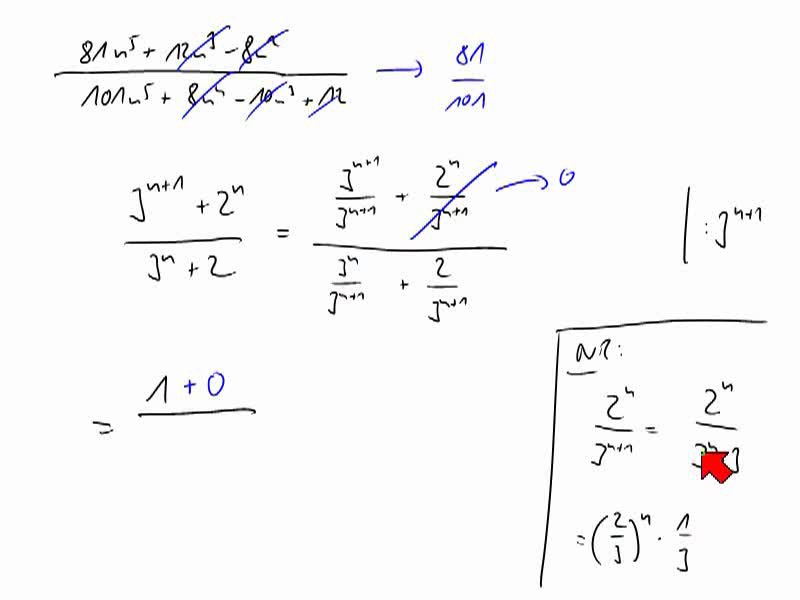 81n⁵ + 12n³ - 8n² / 101n⁵ + 8n⁴ - 10n³ + 12 → 81/101
(3ⁿ⁺¹ + 2ⁿ) / (3ⁿ + 2) = (3ⁿ⁺¹/3ⁿ⁺¹ + 2ⁿ/3ⁿ⁺¹) / (3ⁿ/3ⁿ⁺¹ + 2/3ⁿ⁺¹) → 0 | : 3ⁿ⁺¹
= 1 + 0
NR:
2ⁿ/3ⁿ⁺¹ = 2ⁿ/3ⁿ·3
= (2/3)ⁿ · 1/3